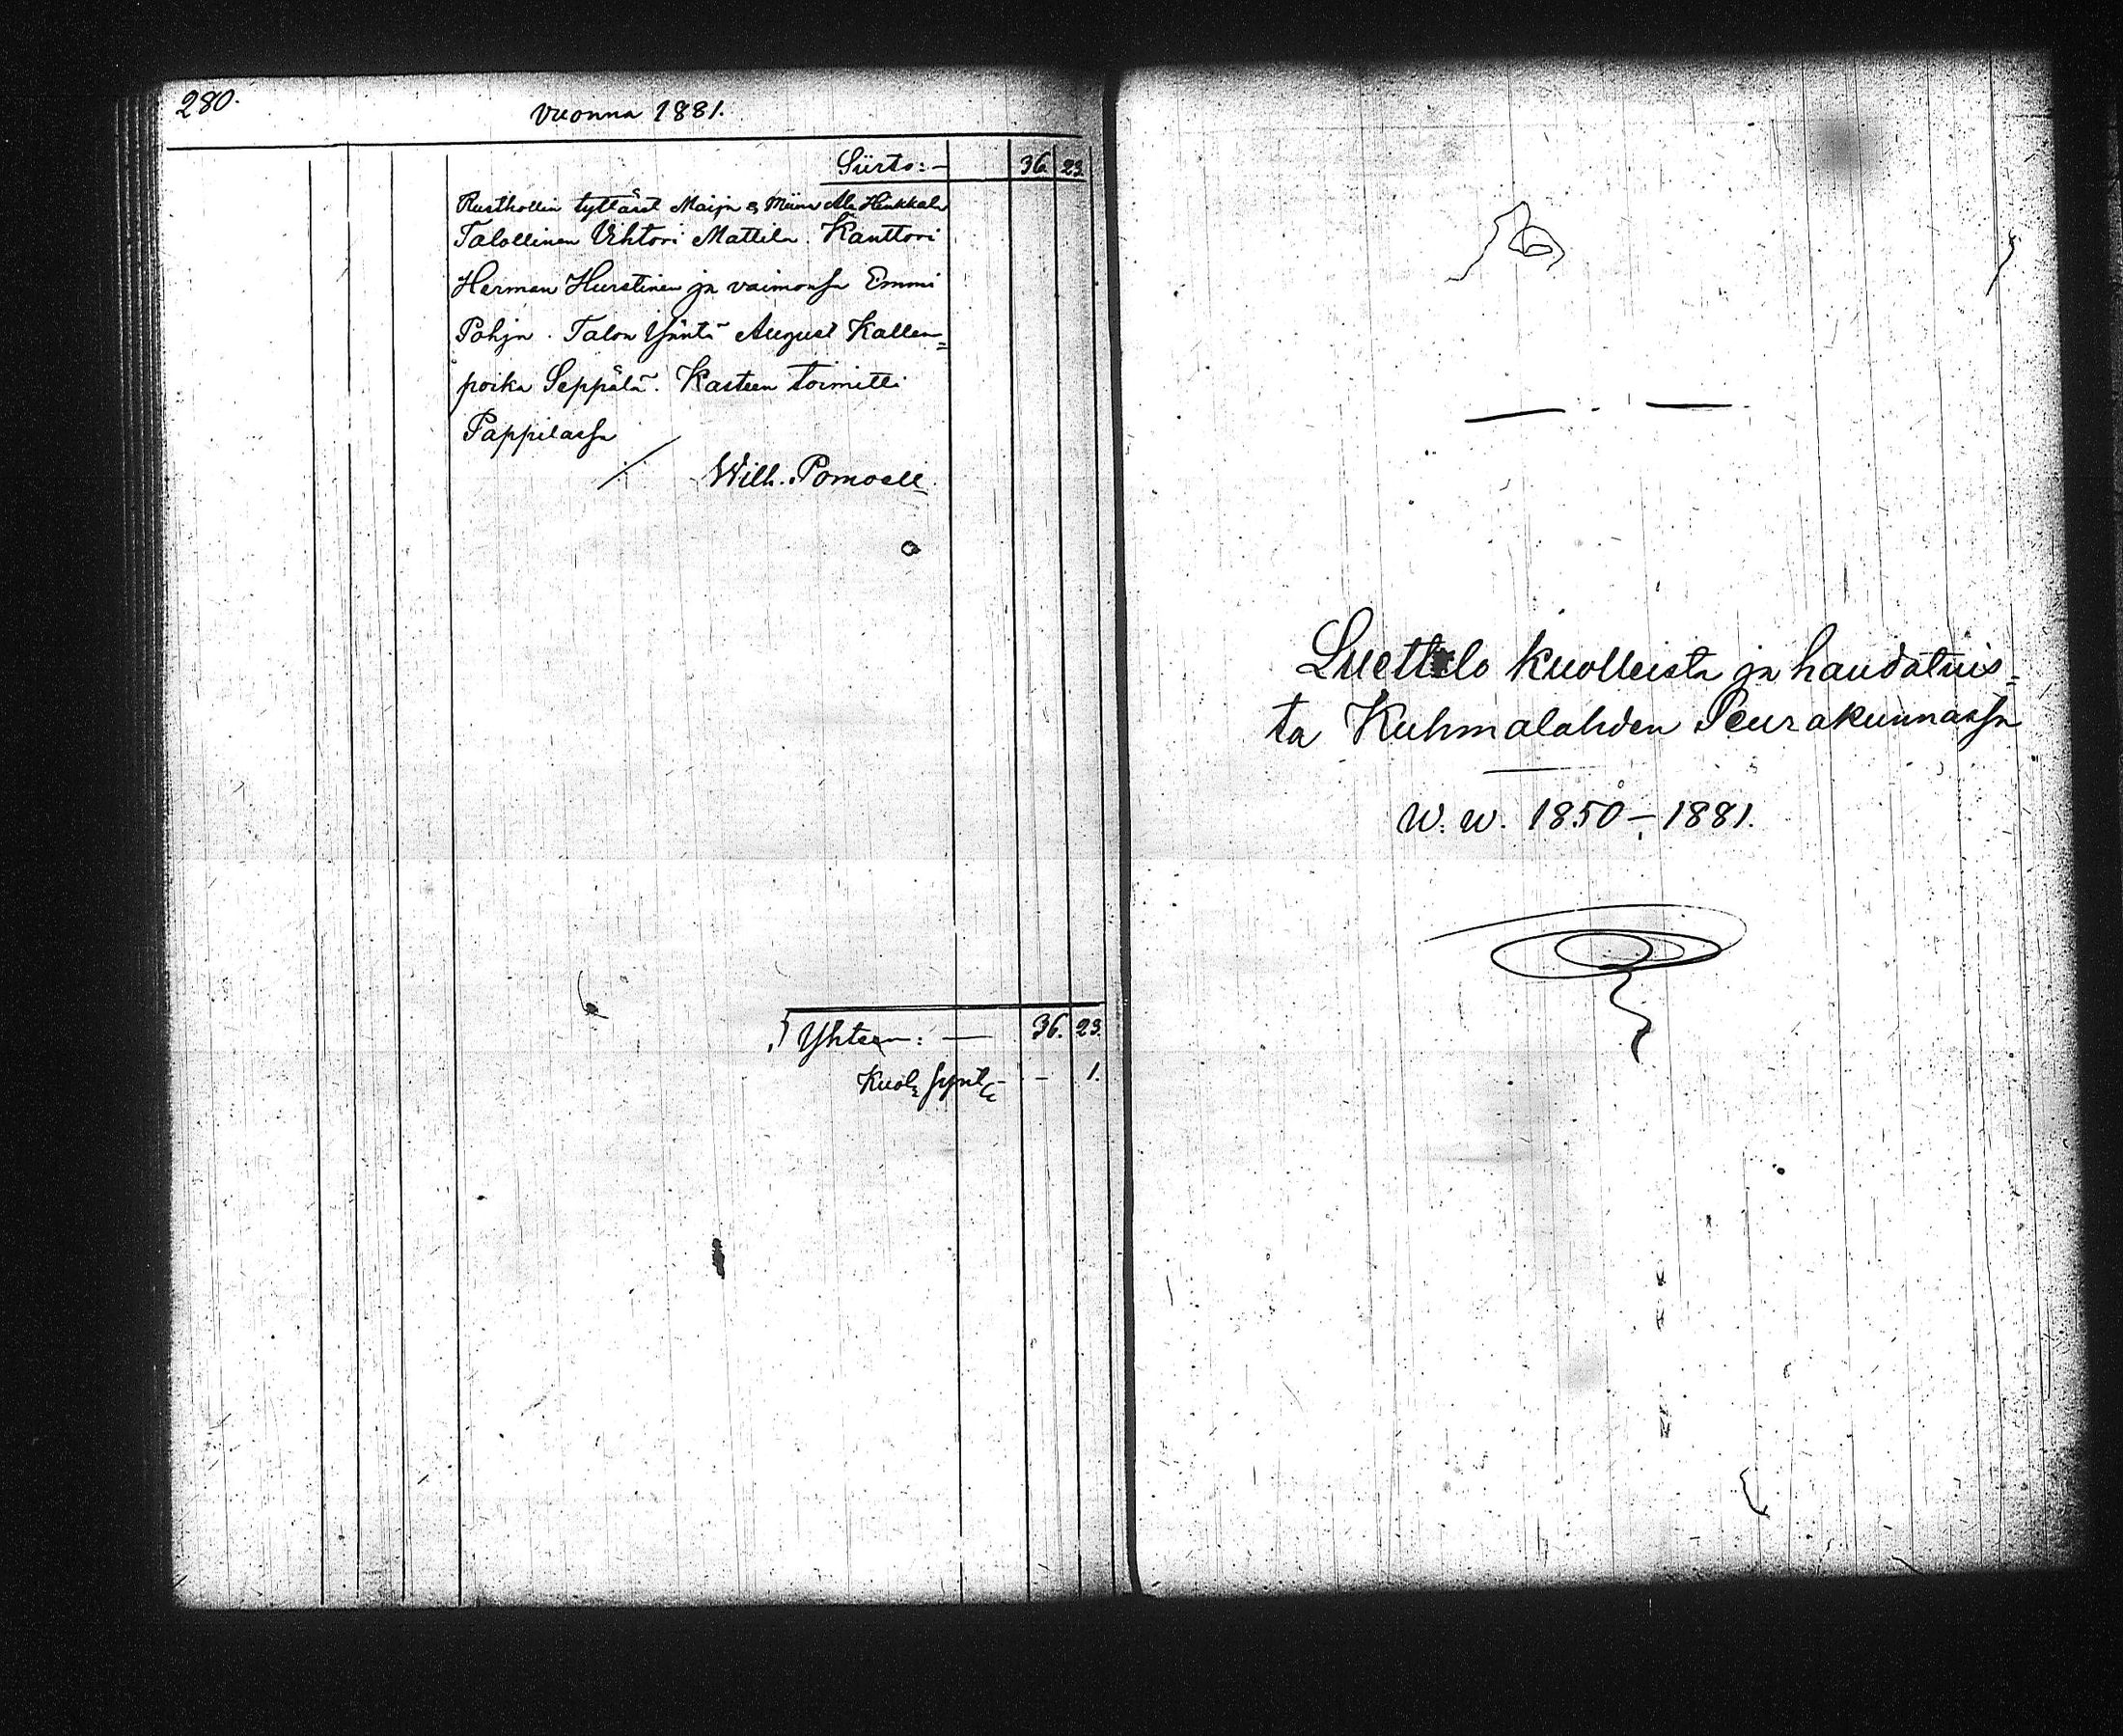 280.
Vuonna 1881.
Siirto:– 36. 23.
Rusthollin tyttäret Maija & Miina Ala Hinkkala
Talollinen Vihtori Mattila. Kanttori
Herman Hurstinen ja vaimonsa Emmi
Pohja. Talon Isäntä August Kallen=
poika Seppälä. Kasteen toimitti
Pappilassa
Wilh. Pomoell.
Yhteen: — 36. 23.
Kuol. synt. – 1.
Luettelo kuolleista ja haudatuis=
ta Kuhmalahden Seurakunnassa
W. w. 1850–1881.